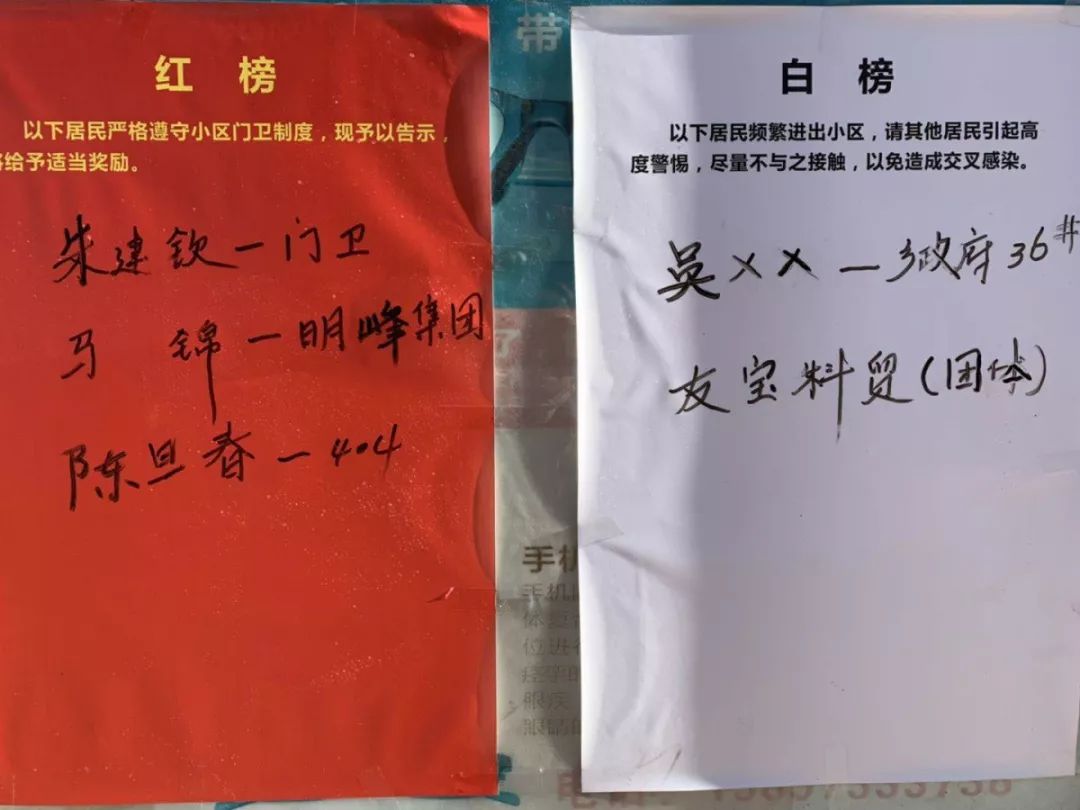 红 榜
以下居民严格遵守小区门卫制度，现予以告示，
将给予适当奖励。
朱建钦一门卫
马 锦一明峰集团
陈旦春一404
带
白 榜
以下居民频繁进出小区，请其他居民引起高
度警惕，尽量不与之接触，以免造成交叉感染。
吳××一乡政府36#
友宝科贸(团体)
疗
手机
手机
体
位进行
眼疾
眼睛
电话: